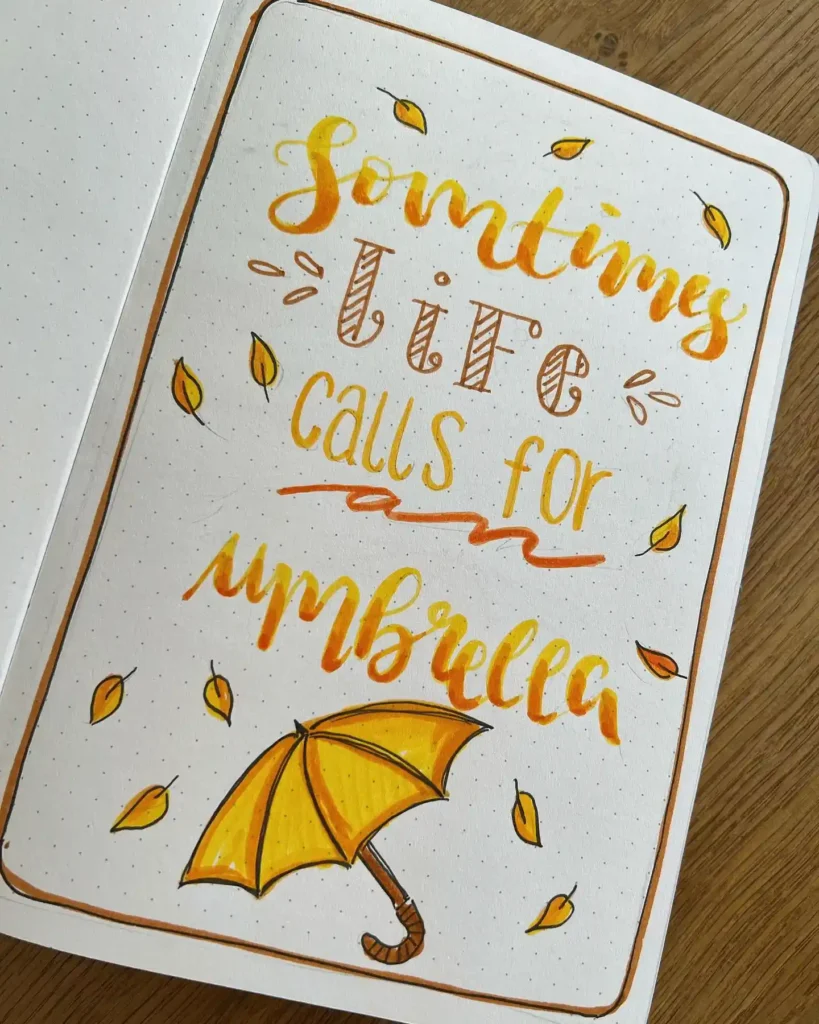 Somtimes
LiFe
calls for
an
umbrella